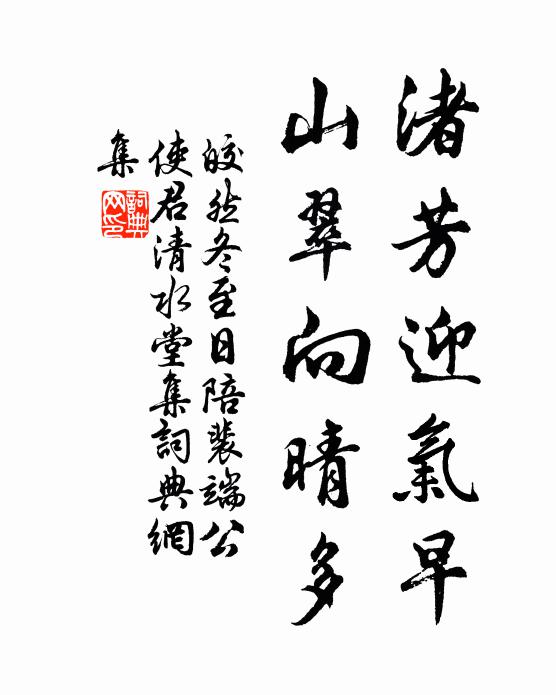 渚芳迎氣早
山翠向晴多
皎然冬至日陪裴端公
使君清水堂集詞典網
集
詞典網印